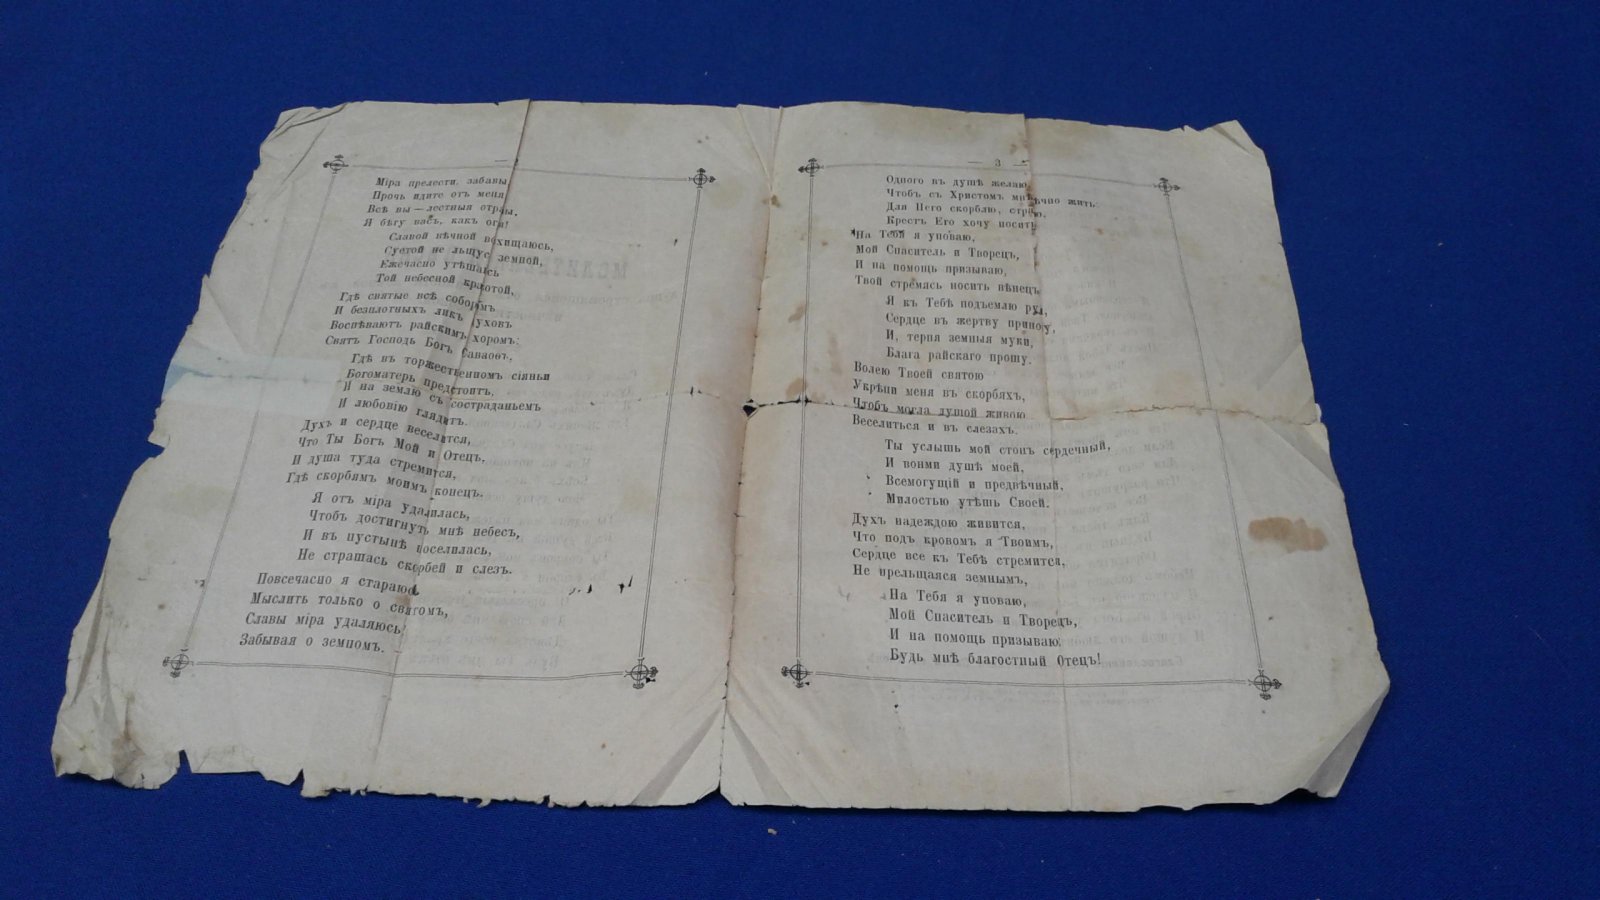 — 2
Мiра прелести, забавы
Прочь идите отъ меня
Всѣ вы — лестныя отравы.
Я бѣгу васъ, какъ огня!
Славой вѣчной восхищаюсь,
Суетой не льщусь земной,
Ежечасно утѣшаясь
Той небесной красотой,
Гдѣ святые всѣ соборомъ
И безплотныхъ ликъ духовъ
Воспѣваютъ райскимъ хоромъ:
Святъ Господь Богъ Саваоѳъ,
Гдѣ въ торжественномъ сiяньи
Богоматерь предстоитъ,
И на землю съ состраданьемъ
И любовiю глядитъ.
Духъ и сердце веселится,
Что Ты Богъ Мой и Отецъ,
И душа туда стремится,
Гдѣ скорбямъ моимъ конецъ.
Я отъ мiра удалилась,
Чтобъ достигнуть мнѣ небесъ,
И въ пустынѣ поселилась,
Не страшась скорбей и слезъ.
Повсечасно я стараюсь
Мыслить только о святомъ,
Славы мiра удаляюсь
Забывая о земномъ.
— 3 —
Одного въ душѣ желаю
Чтобъ съ Христомъ мнѣ вѣчно жить
Для Него скорблю, стражду,
Крестъ Его хочу носить
На Тебя я уповаю,
Мой Спаситель и Творецъ,
И на помощь призываю,
Твой стремясь носить вѣнецъ
Я къ Тебѣ подъемлю руки,
Сердце въ жертву приношу,
И, терпя земныя муки,
Блага райскаго прошу.
Волею Твоей святою
Укрѣпи меня въ скорбяхъ,
Чтобъ могла душой живою
Веселиться и въ слезахъ.
Ты услышь мой стонъ сердечный,
И вонми душѣ моей,
Всемогущiй и предвѣчный,
Милостью утѣшь Своей.
Духъ надеждою живится,
Что подъ кровомъ я Твоимъ,
Сердце все къ Тебѣ стремится,
Не прельщаяся земнымъ,
На Тебя я уповаю,
Мой Спаситель и Творецъ,
И на помощь призываю:
Будь мнѣ благостный Отецъ!